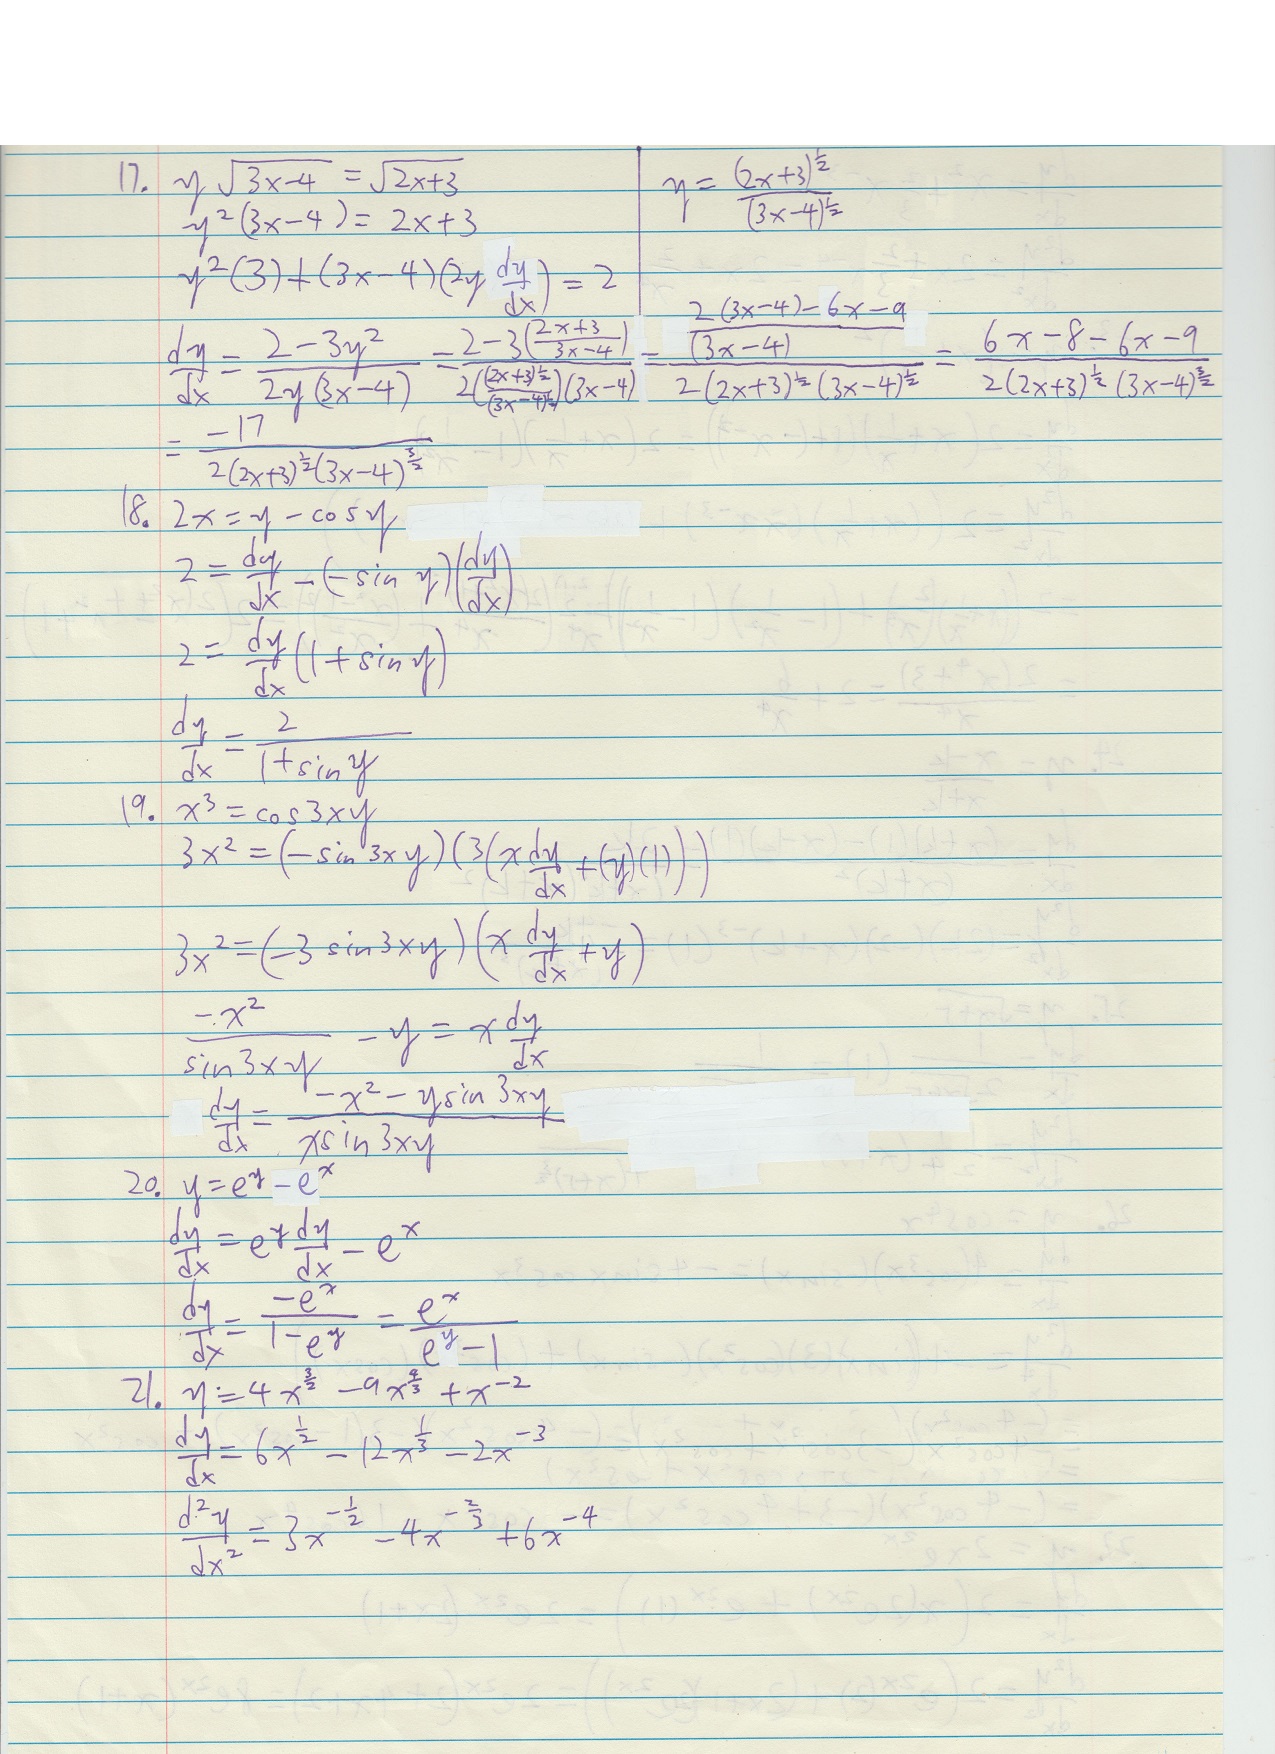 17. y√(3x-4) = √(2x+3)
y²(3x-4) = 2x+3
y = (2x+3)^(1/2) / (3x-4)^(1/2)
y²(3) + (3x-4)(2y dy/dx) = 2
dy/dx = (2-3y²) / (2y(3x-4)) = (2-3((2x+3)/(3x-4))) / (2((2x+3)^(1/2)/(3x-4)^(1/2))(3x-4)) = ((2(3x-4)-6x-9)/(3x-4)) / (2(2x+3)^(1/2)(3x-4)^(1/2)) = (6x-8-6x-9) / (2(2x+3)^(1/2)(3x-4)^(3/2))
= -17 / (2(2x+3)^(1/2)(3x-4)^(3/2))
18. 2x = y - cos y
2 = dy/dx - (-sin y)(dy/dx)
2 = dy/dx (1 + sin y)
dy/dx = 2 / (1+sin y)
19. x³ = cos 3xy
3x² = (-sin 3xy)(3(x dy/dx + (y)(1)))
3x² = (-3 sin 3xy)(x dy/dx + y)
-x² / sin 3xy - y = x dy/dx
dy/dx = (-x² - y sin 3xy) / (x sin 3xy)
20. y = e^y - e^x
dy/dx = e^y dy/dx - e^x
dy/dx = -e^x / (1-e^y) = e^x / (e^y - 1)
21. y = 4x^(3/2) - 9x^(4/3) + x^(-2)
dy/dx = 6x^(1/2) - 12x^(1/3) - 2x^(-3)
d²y/dx² = 3x^(-1/2) - 4x^(-2/3) + 6x^(-4)